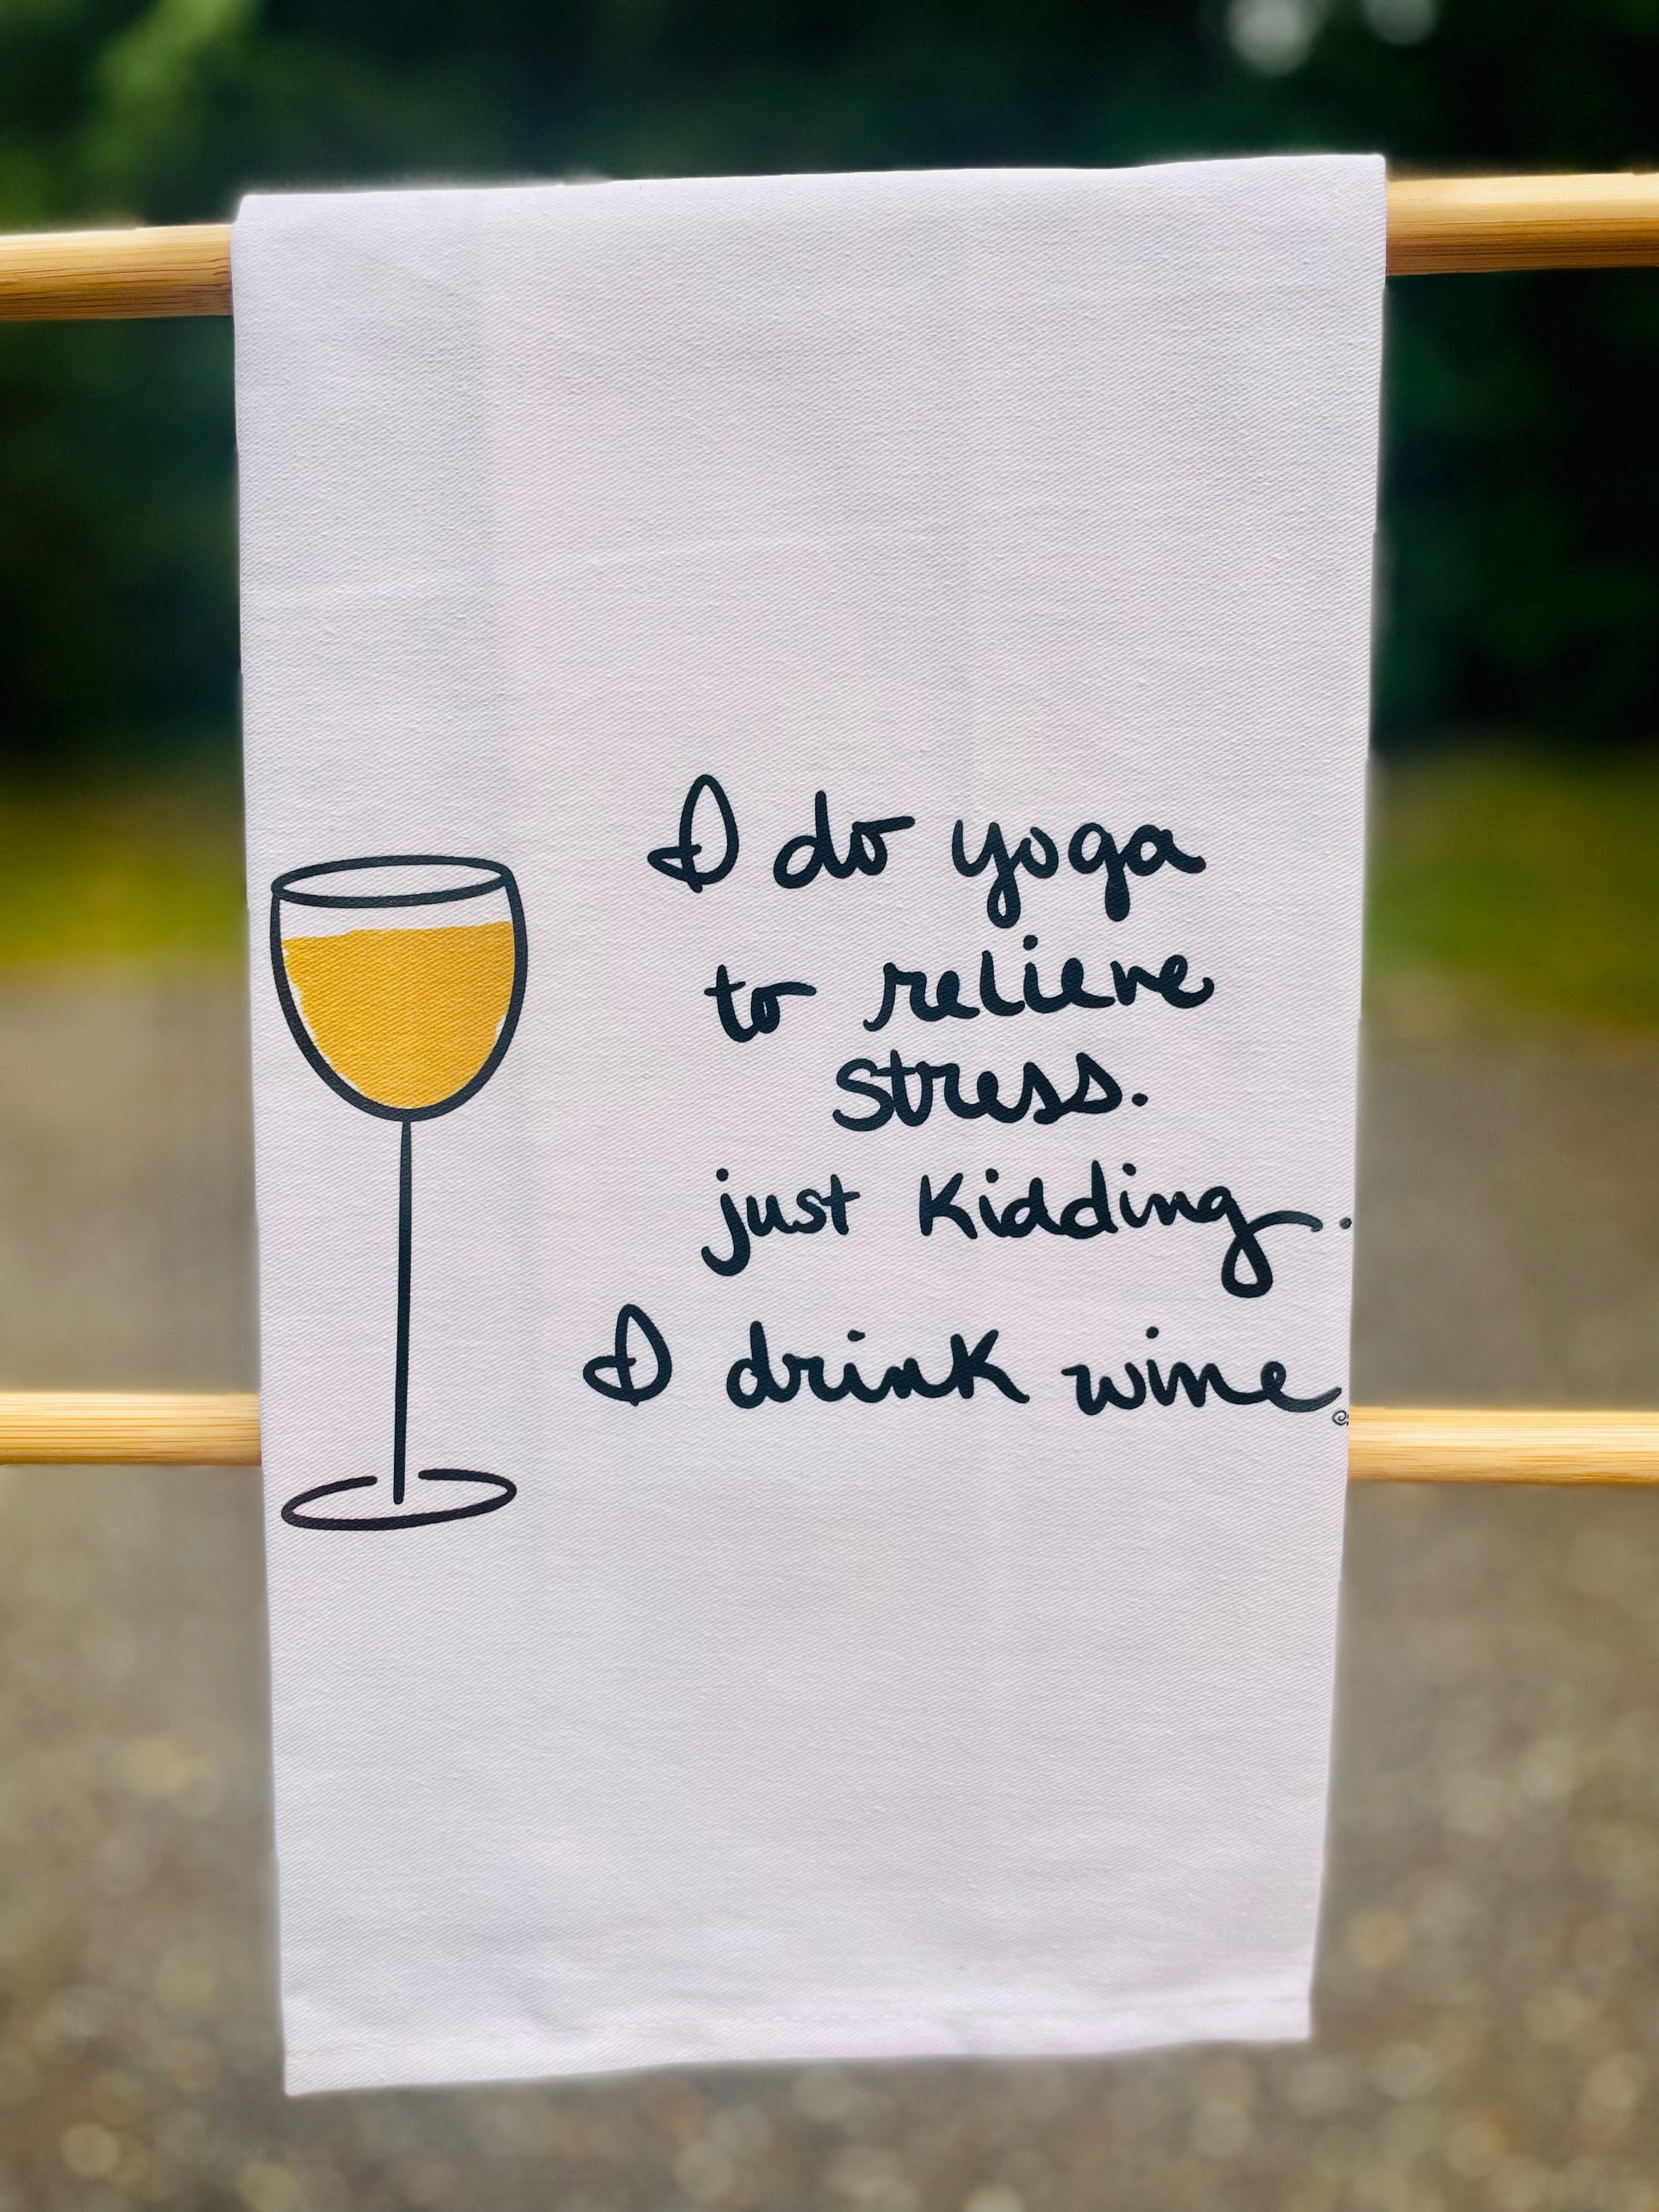 I do yoga
to relieve
stress.
just kidding.
I drink wine